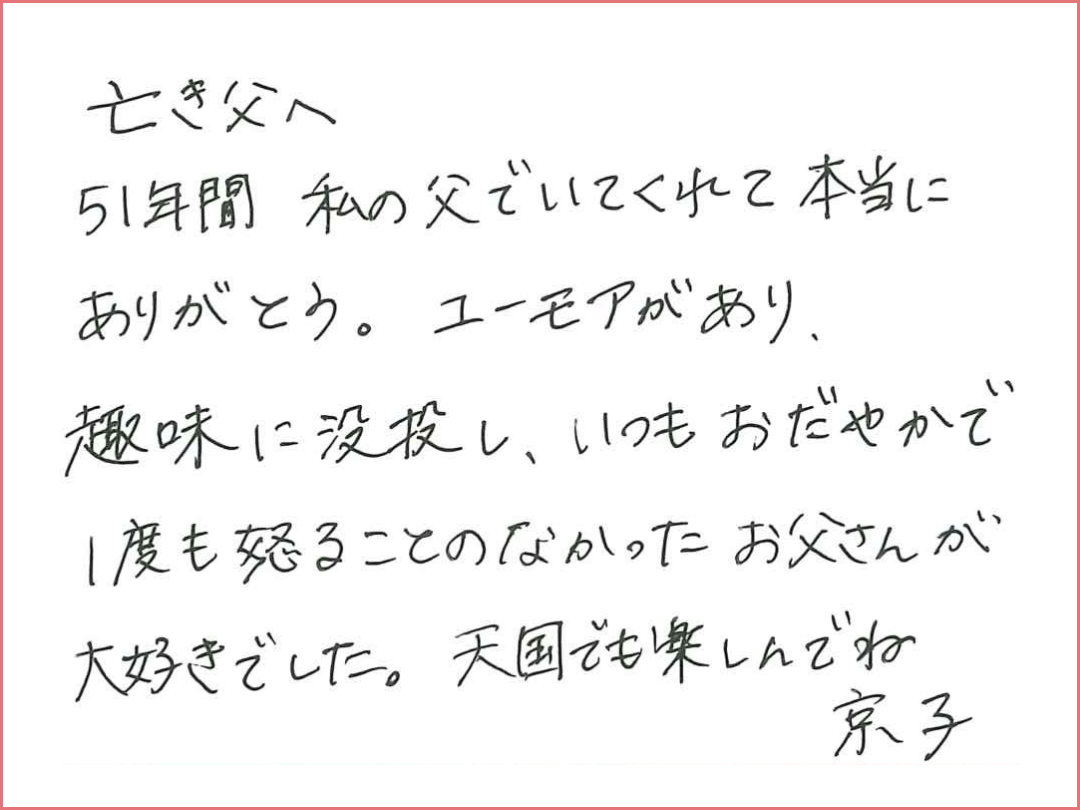 亡き父へ
51年間 私の父でいてくれて本当に
ありがとう。 ユーモアがあり、
趣味に没投し、いつもおだやかで
1度も怒ることのなかったお父さんが
大好きでした。 天国でも楽しんでね
京子